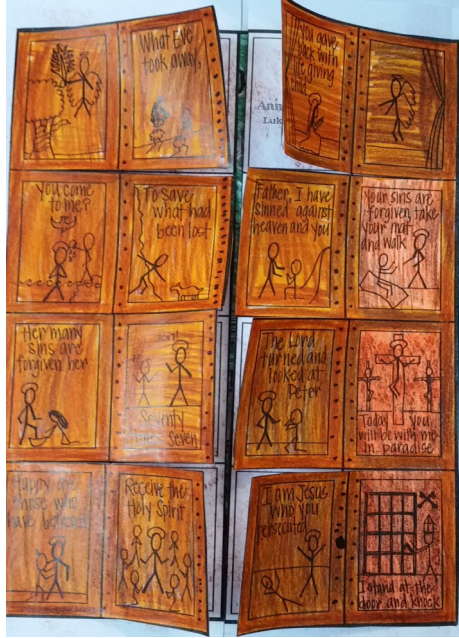 What Eve
took away,
You gave
back with
life giving
child
Ann
Luk
You come
to me?
To save
what had
been lost
Father, I have
sinned against
heaven and you
Your sins are
forgiven take
your mat
and walk
Her many
sins are
forgiven her
Seventy
times Seven
The Lord
turned and
looked at
Peter
Today you
will be with me
in paradise
Happy are
those who
have believed
Receive the
Holy Spirit
I am Jesus
who you
persecuted
I stand at the
door and knock